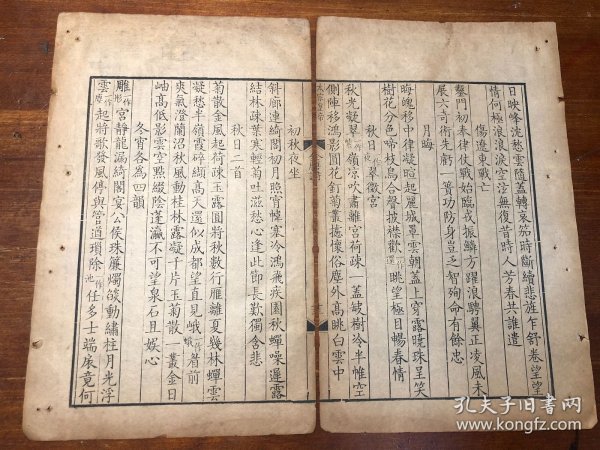 日映峰沈愁雲隨蓋轉哀笳時斷續悲旌乍舒卷望望
情何極浪浪淚空泫無復昔時人芳春共誰遣
傷遼東戰亡
鑿門初奉律仗戰始臨戎振鱗方躍浪騁翼正凌風未
展六奇術先虧一簣功防身豈乏智殉命有餘忠
月晦
晦魄移中律凝暄起麗城罩雲朝蓋上穿露曉珠呈笑
樹花分色啼枝鳥合聲披襟歡一作還眺望極目暢春情
秋日一作夜翠微宮
秋光凝翠一作紫嶺凉吹肅離宮荷疎一蓋缺樹冷半帷空
側陣移鴻影圓花釘菊叢攄懷俗塵外高眺白雲中
初秋夜坐
斜廊連綺閣初月照宵幃塞冷鴻飛疾園秋蟬噪遲露
結林疎葉寒輕菊吐滋愁心逢此節長歎獨含悲
秋日二首
菊散金風起荷疎玉露圓將秋數行雁離夏幾林蟬雲
凝愁半嶺霞碎纈高天還似成都望直見峨一作娥眉前
爽氣澄蘭沼秋風動桂林露凝千片玉菊散一叢金日
岫高低影雲空點綴陰蓬瀛不可望泉石且娛心
冬宵各為四韻
雕一作彤宮靜龍漏綺閣宴公侯珠簾燭焰動繡柱月光浮
雲一作塵起將歌發風停與管遒瑣除一作池任多士端扆竟何
孔夫子旧书网
www.kongfz.com